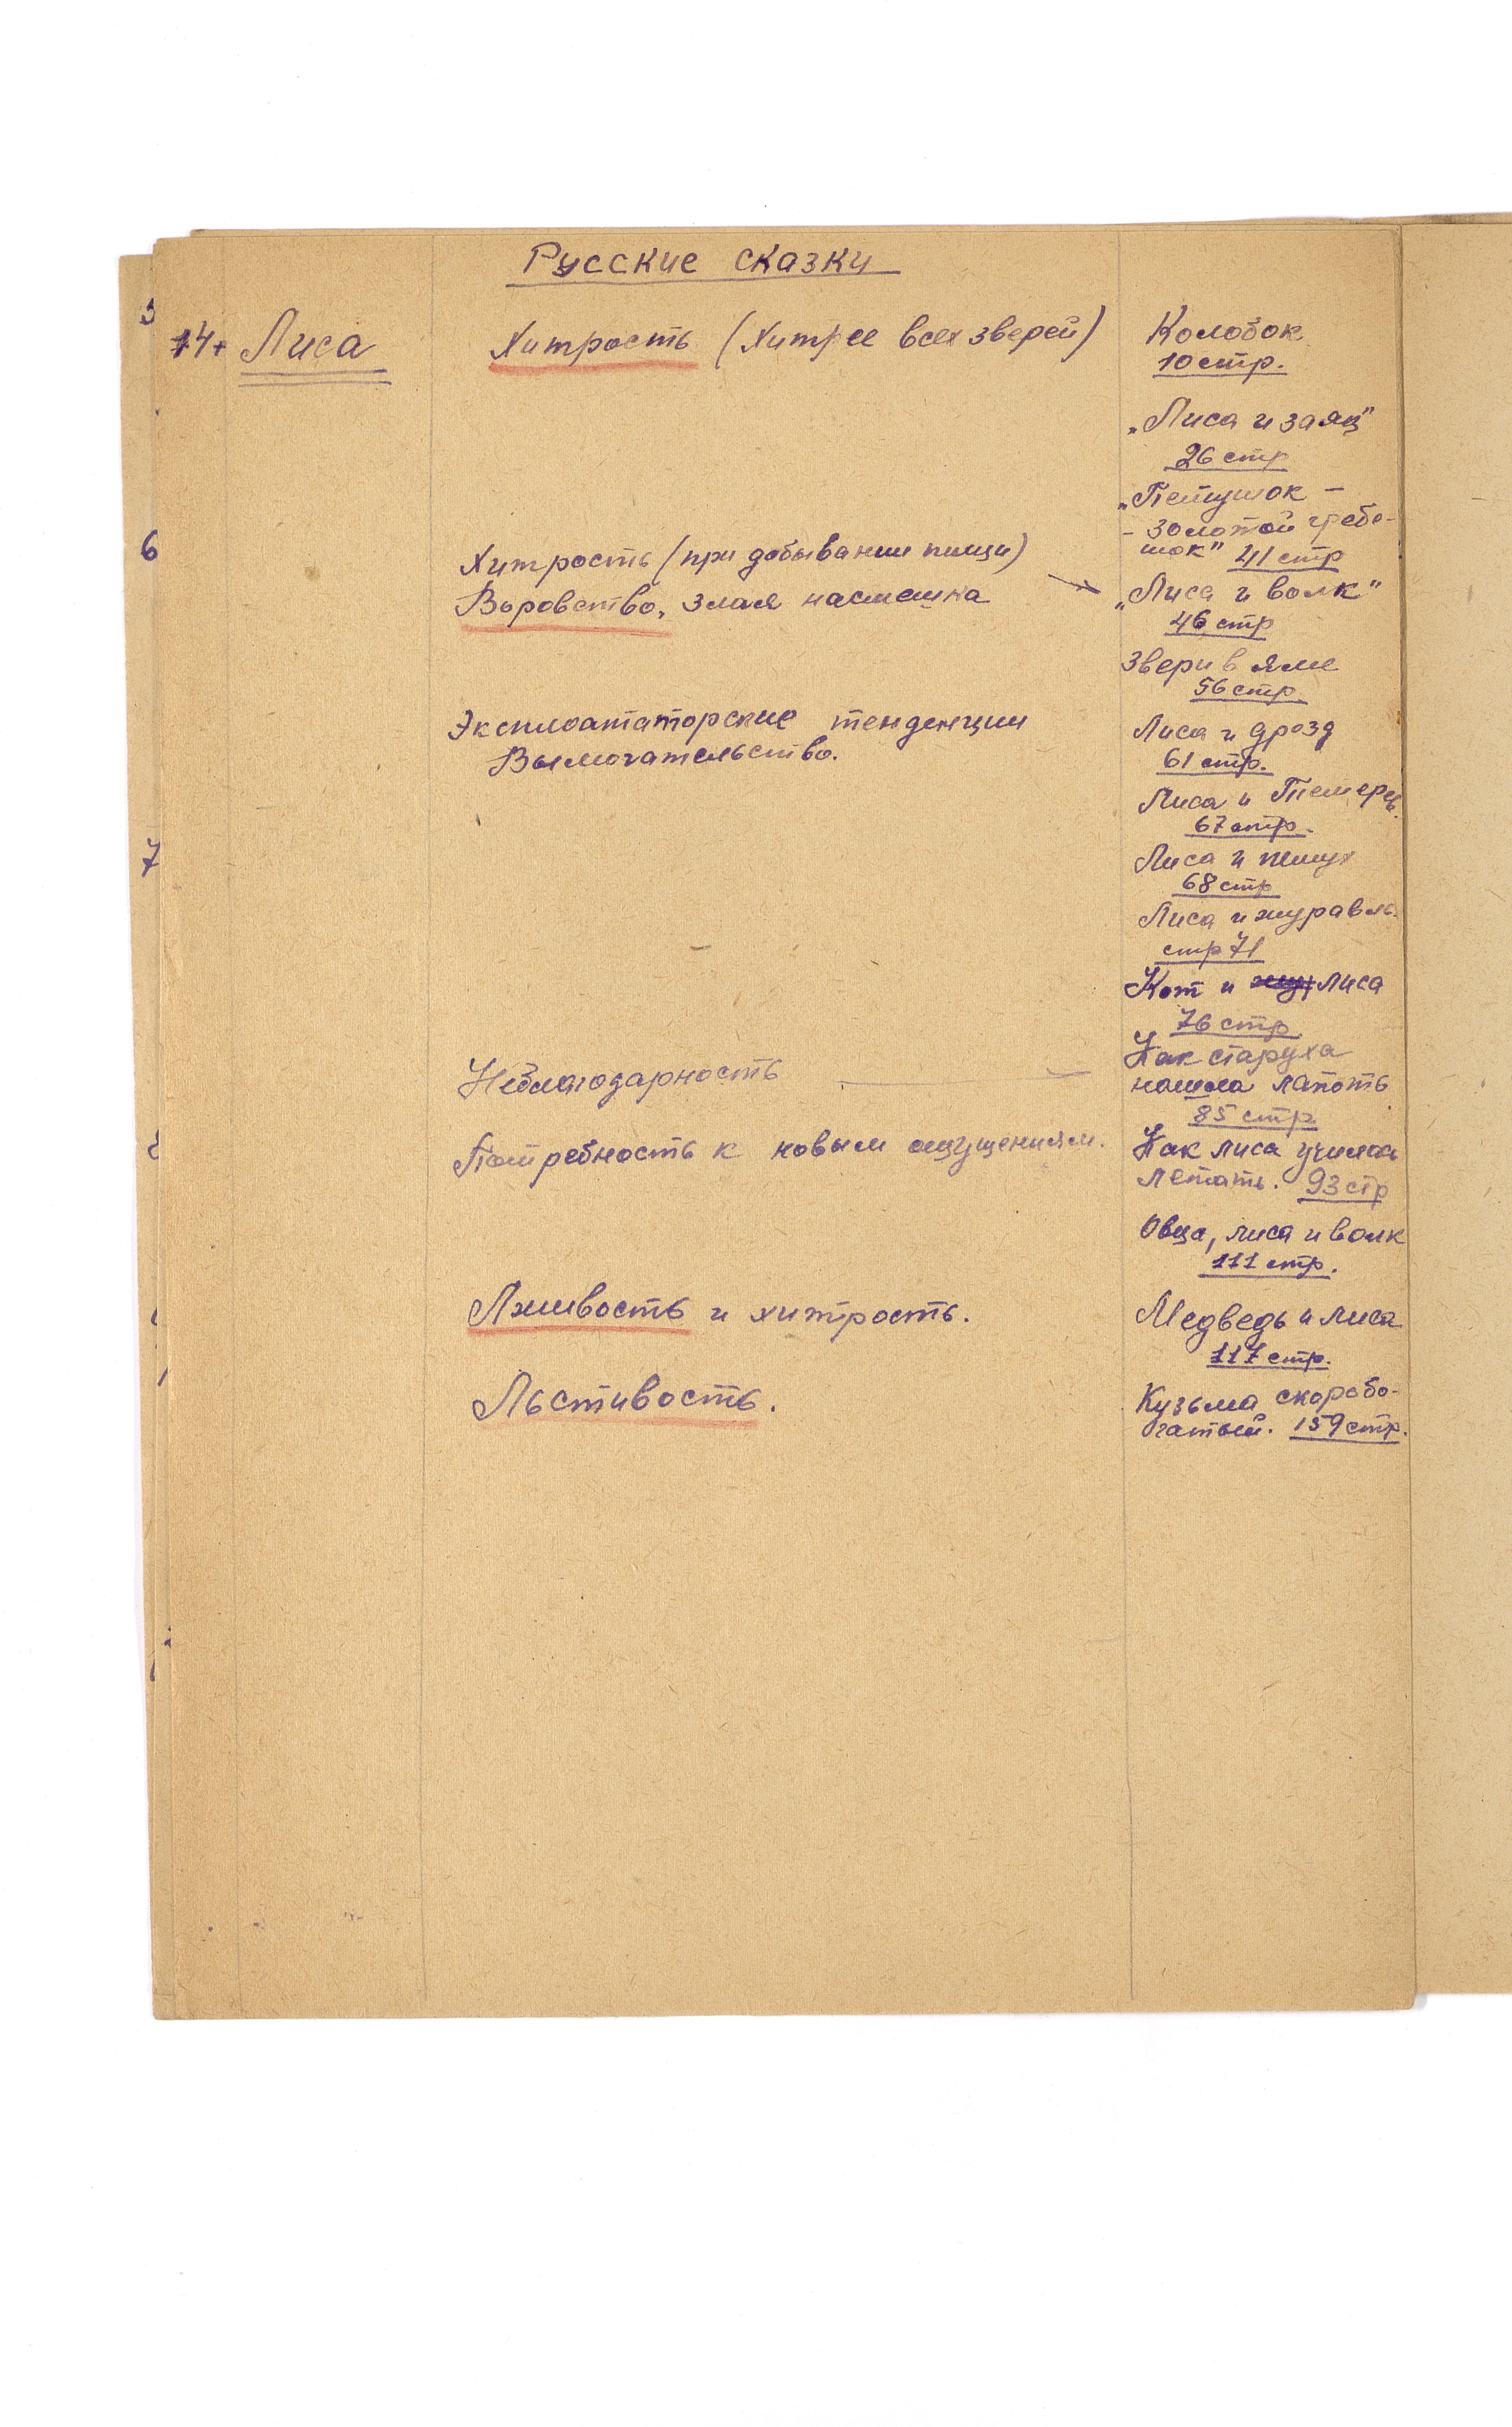 Русские сказки
14. Лиса
Хитрость (Хитрее всех зверей)
Колобок
10 стр.
„Лиса и заяц"
26 стр
„Петушок –
– золотой гребе-
шок" 41 стр
Хитрость (при добывании пищи)
Воровство, злая насмешка
„Лиса и волк"
46 стр
Звери в яме
56 стр.
Эксплоататорские тенденции
Вымогательство.
Лиса и дрозд
61 стр.
Лиса и Тетерев.
67 стр.
Лиса и петух
68 стр
Лиса и журавль.
стр 71
Кот и жу лиса
76 стр.
Неблагодарность
Как старуха
нашла лапоть
85 стр
Потребность к новым ощущениям.
Как лиса училась
летать. 93 стр
Овца, лиса и волк
111 стр.
Лживость и хитрость.
Медведь и лиса
117 стр.
Льстивость.
Кузьма скоробо-
гатый. 159 стр.
6
7